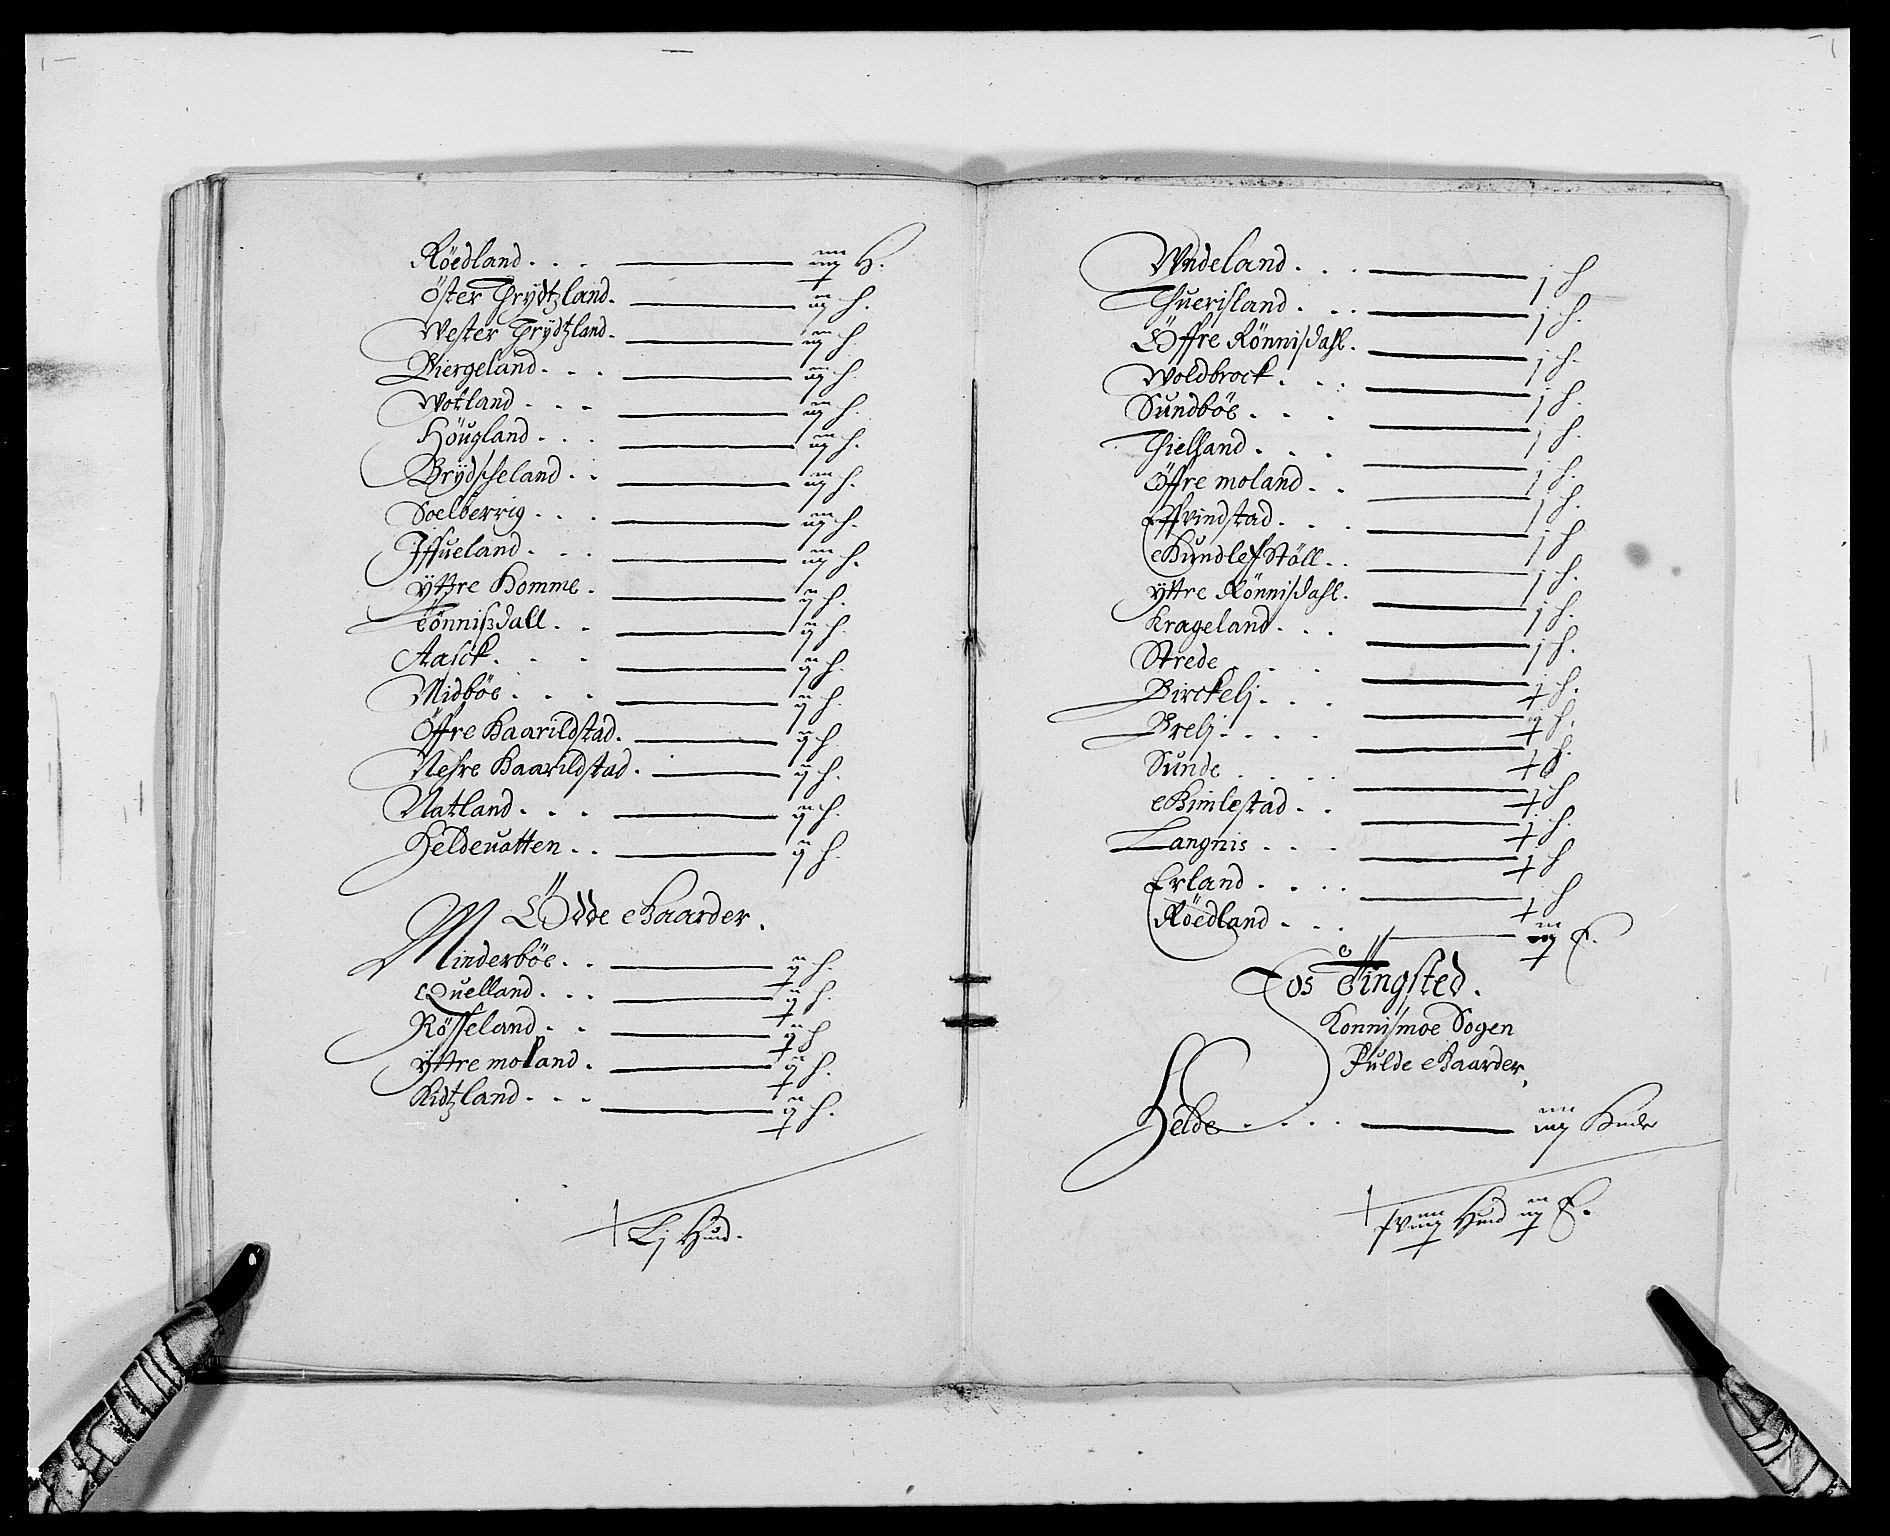 Röedland . . .
Öster Trydtzland. h.
Wester Trydtzland. h.
Biergeland . . . h.
Wotland . . . h.
Höugland . . . h.
Brydscheland . . h.
Soelberrig . . . h.
Iffueland . . . h.
Yttre Homme . ij h.
Tönnißdall . . ij h.
Aasck . . . ij h.
Midböe . . . ij h.
Öffre Haarildstad. ij h.
Nehre Haarildstad. ij h.
Natland . . . ij h.
Heldeuatten . . ij h.
Ödde Gaarder.
Minderböe . . h.
Quelland . . . h.
Rösseland . . h
Yttre moland . h.
Kidtzland . . . h.
Lj Hud.
Wndeland . . . j h
Thuerisland . . . j h.
Öffre Rönnisdahl. j h.
Woldbrock . . . j h.
Sundböe . . . j h.
Thielland . . . j h.
Öffre moland . . j h.
Effvindstad . . . j h
Gundlefstöll . . j h.
Yttre Rönnisdahl. j h.
Krageland . . . j h.
Strede . . . h.
Birckelj . . . h.
Brelj . . . . h.
Sunde . . . . h
Gimlestad . . h.
Langnis . . . h
Erland . . . . h
Röedland . . .
Fos Tingsted.
Konnismoe Sogen
Fulde Gaarder,
Helde . . . . Huder
Hud